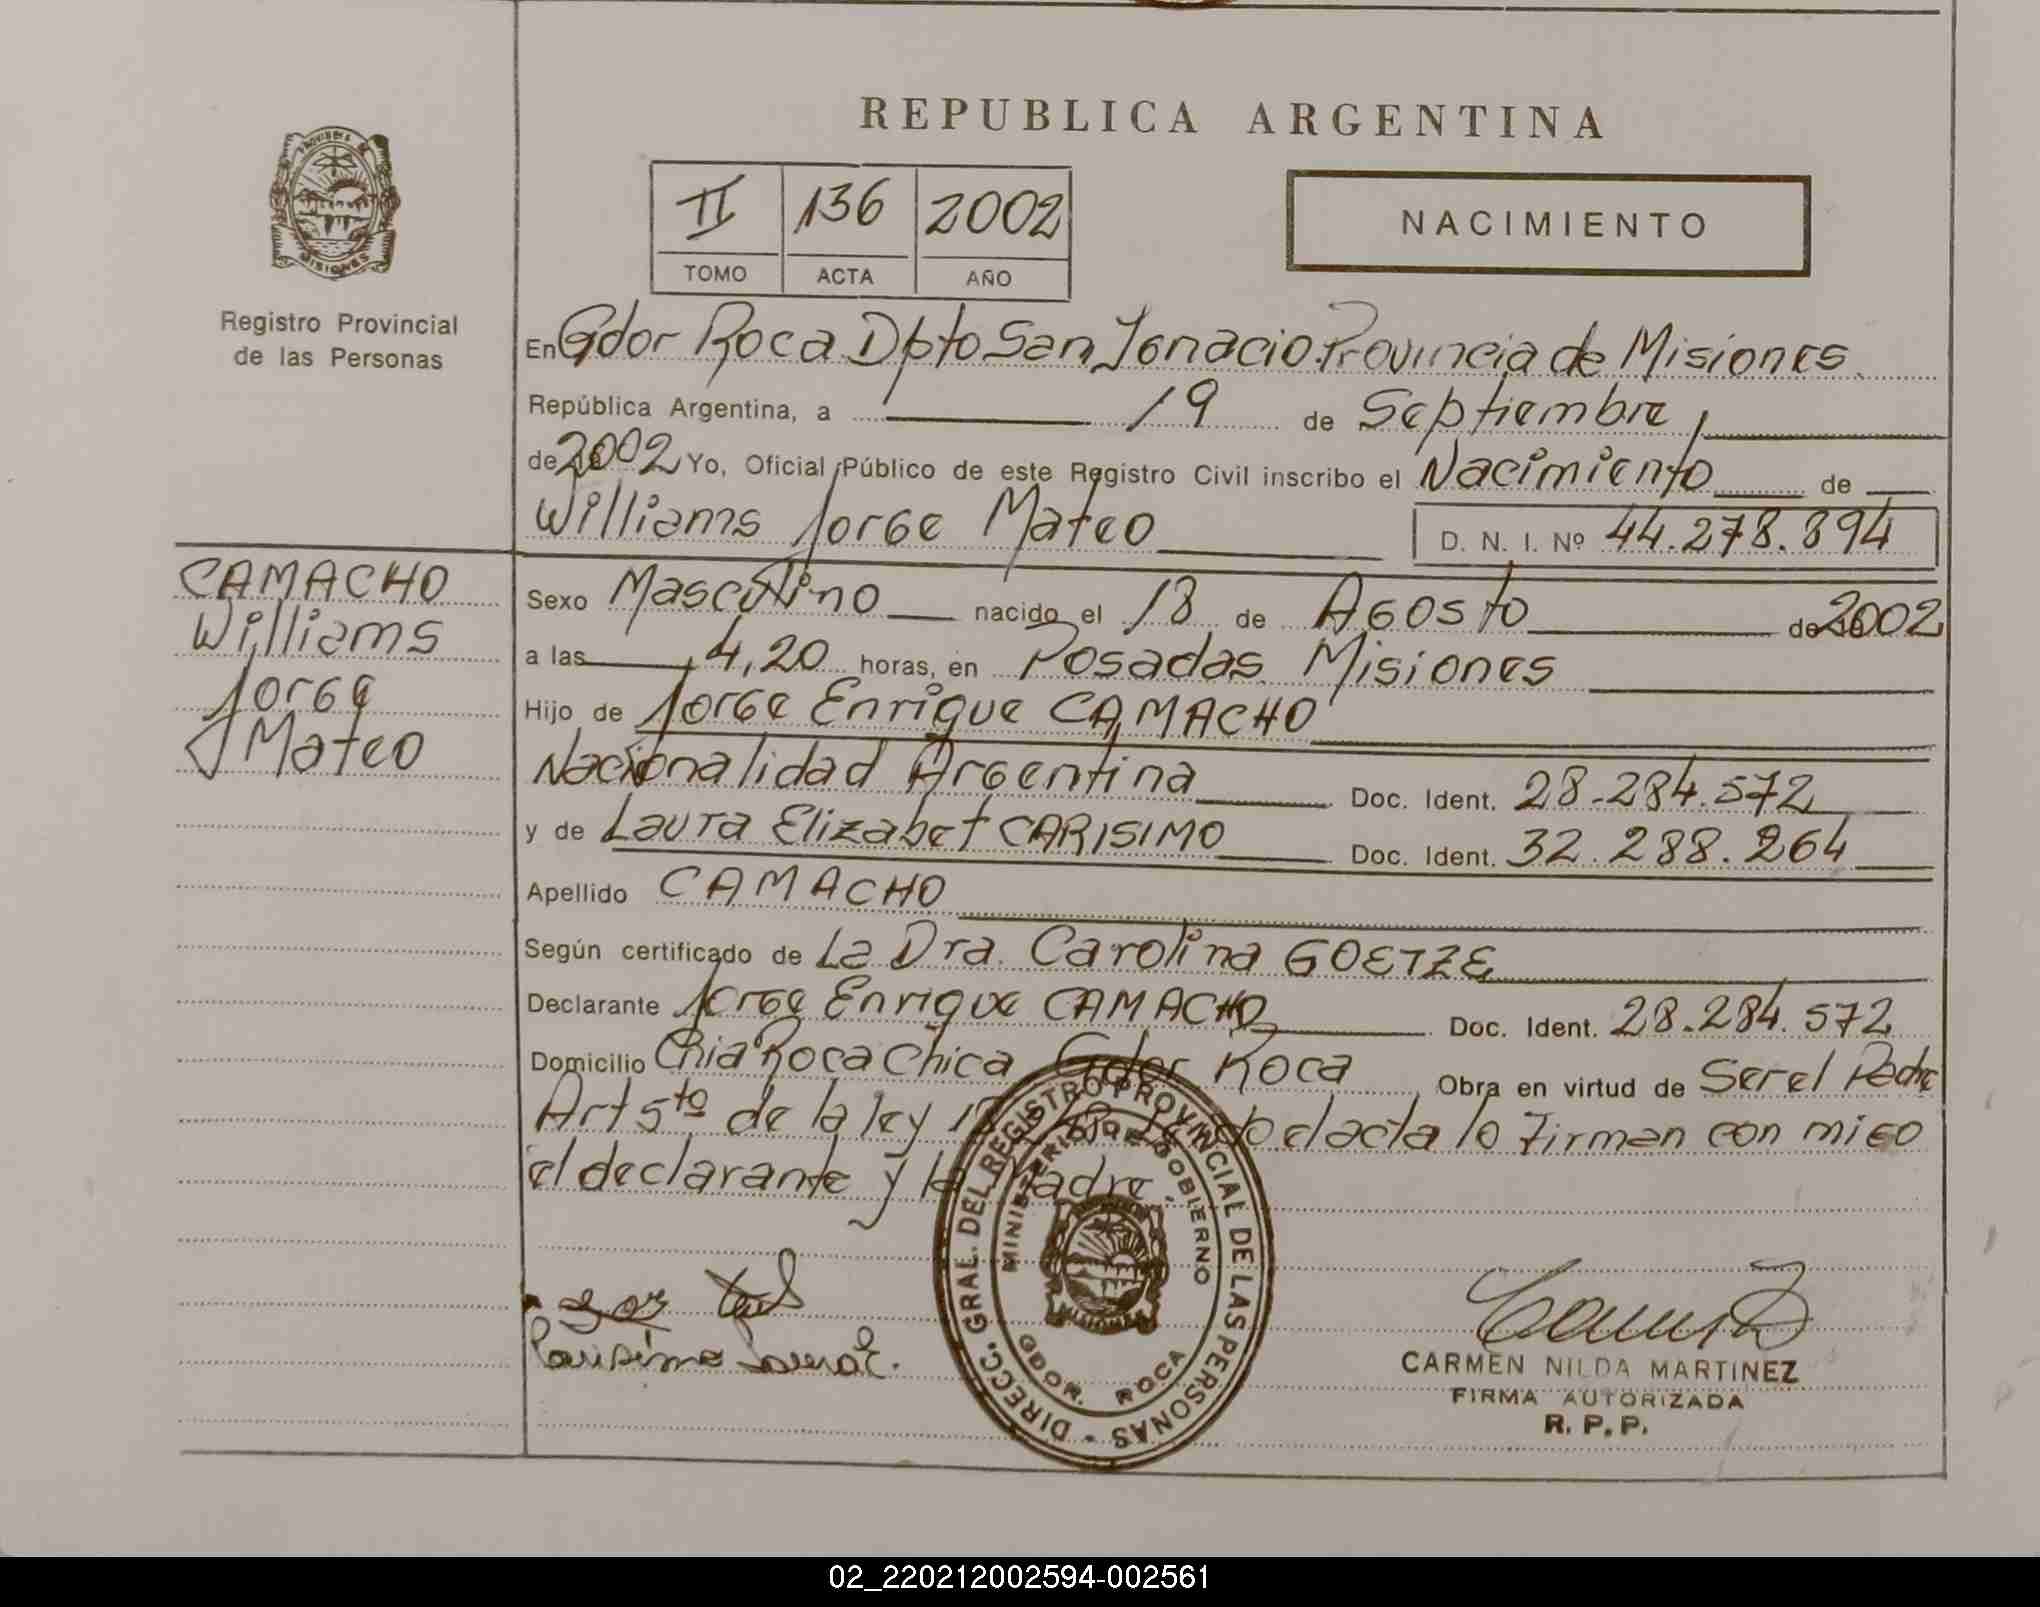 REPUBLICA ARGENTINA
PROVINCIA DE MISIONES
Registro Provincial
de las Personas
II 136 2002
TOMO ACTA AÑO
NACIMIENTO
En Gdor Roca Dpto San Ignacio Provincia de Misiones
República Argentina, a 19 de Septiembre
de 2002 Yo, Oficial Público de este Registro Civil inscribo el Nacimiento de
Williams Jorge Mateo D. N. I. Nº 44.278.894
CAMACHO
Williams
Jorge
Mateo
Sexo Masculino nacido el 18 de Agosto de 2002
a las 4,20 horas, en Posadas Misiones
Hijo de Jorge Enrique CAMACHO
Nacionalidad Argentina Doc. Ident. 28.284.572
y de Laura Elizabet CARISIMO Doc. Ident. 32.288.264
Apellido CAMACHO
Según certificado de La Dra. Carolina GOETZE
Declarante Jorge Enrique CAMACHO Doc. Ident. 28.284.572
Domicilio Chia Roca Chica Gdor Roca Obra en virtud de Ser el Padre
Art 5to de la ley el acta lo Firman con migo
el declarante y la Madre.
DIRECC. GRAL. DEL REGISTRO PROVINCIAL DE LAS PERSONAS -
MINISTERIO DE GOBIERNO
GDOR. ROCA
MISIONES
Carisimo Laura E.
CARMEN NILDA MARTINEZ
FIRMA AUTORIZADA
R. P. P.
02_220212002594-002561